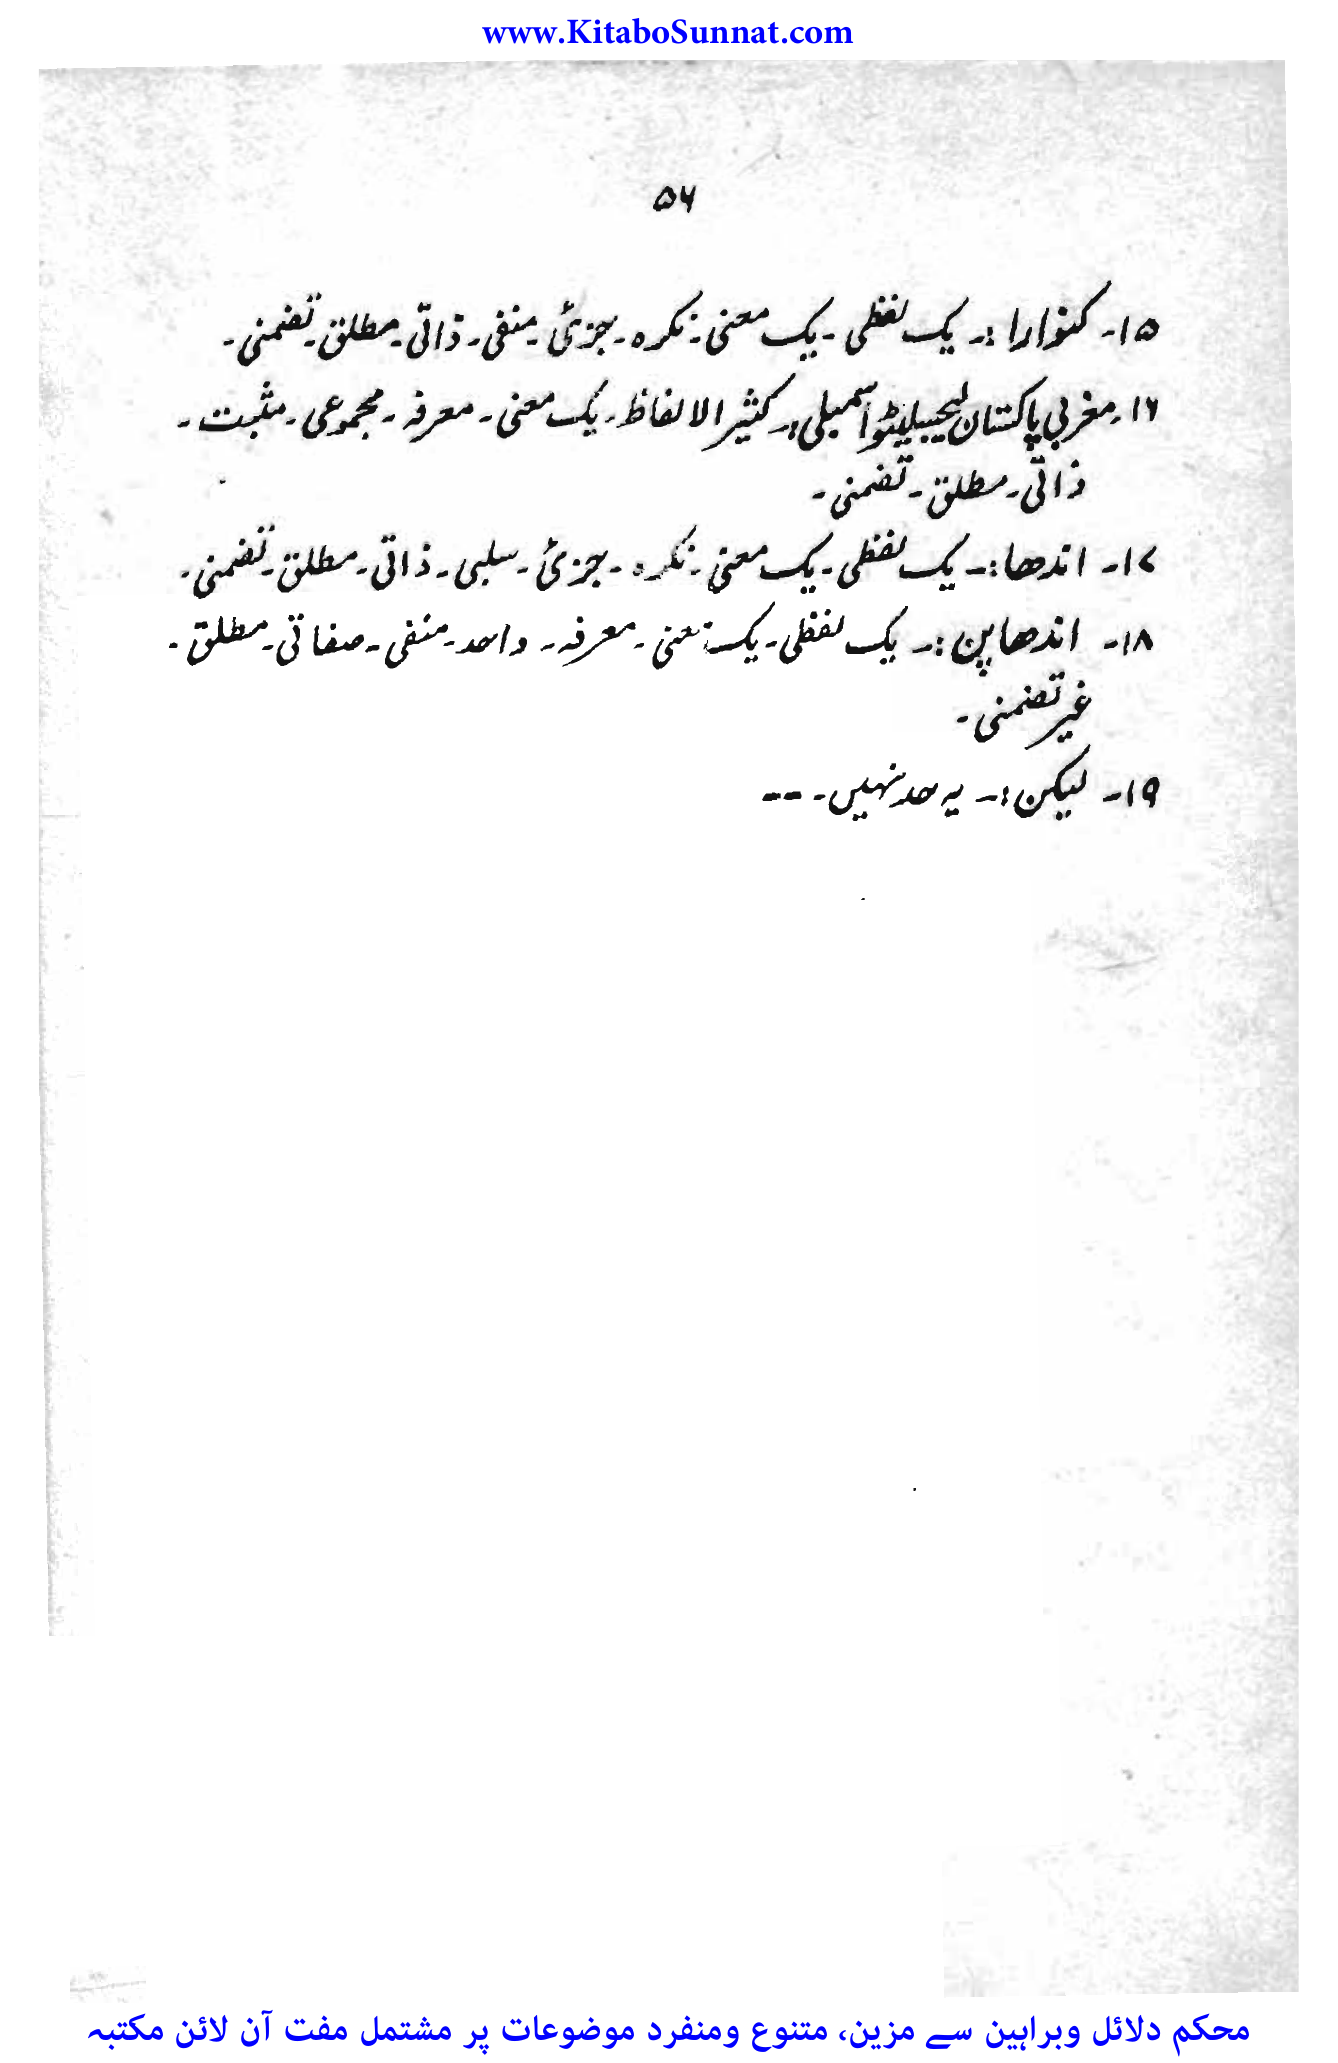 www.KitaboSunnat.com
۵۶
۱۵۔ کنوارا :۔ یک لفظی ۔ یک معنی ۔ نکرہ ۔ جزئی ۔ منفی ۔ ذاتی ۔ مطلق ۔ تضمنی ۔
۱۶۔ مغربی پاکستان لیجیسلیٹو اسمبلی :۔ کثیر الالفاظ ۔ یک معنی ۔ معرفہ ۔ مجموعی ۔ مثبت ۔
ذاتی ۔ مطلق ۔ تضمنی ۔
۱۷۔ اندھا :۔ یک لفظی ۔ یک معنی ۔ نکرہ ۔ جزئی ۔ سلبی ۔ ذاتی ۔ مطلق ۔ تضمنی ۔
۱۸۔ اندھاپن :۔ یک لفظی ۔ یک معنی ۔ معرفہ ۔ واحد ۔ منفی ۔ صفاتی ۔ مطلق ۔
غیر تضمنی ۔
۱۹۔ لیکن :۔ یہ حد نہیں ۔ --
محکم دلائل وبراہین سے مزین، متنوع ومنفرد موضوعات پر مشتمل مفت آن لائن مکتبہ